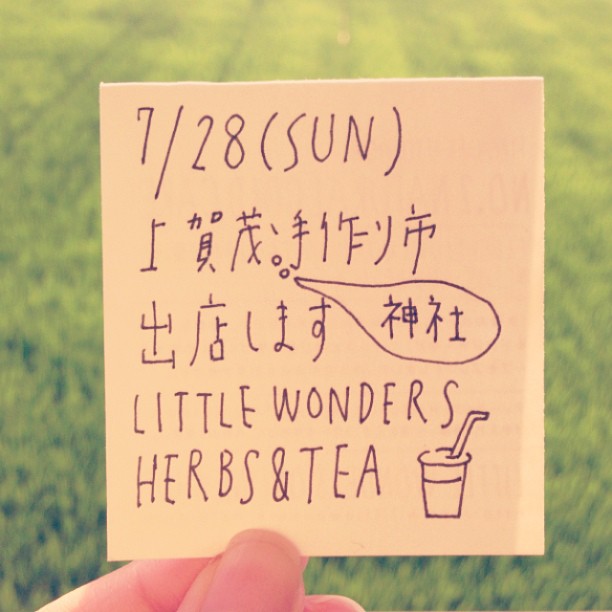 7/28(SUN)
上賀茂手作り市
神社
出店します
LITTLE WONDERS
HERBS&TEA